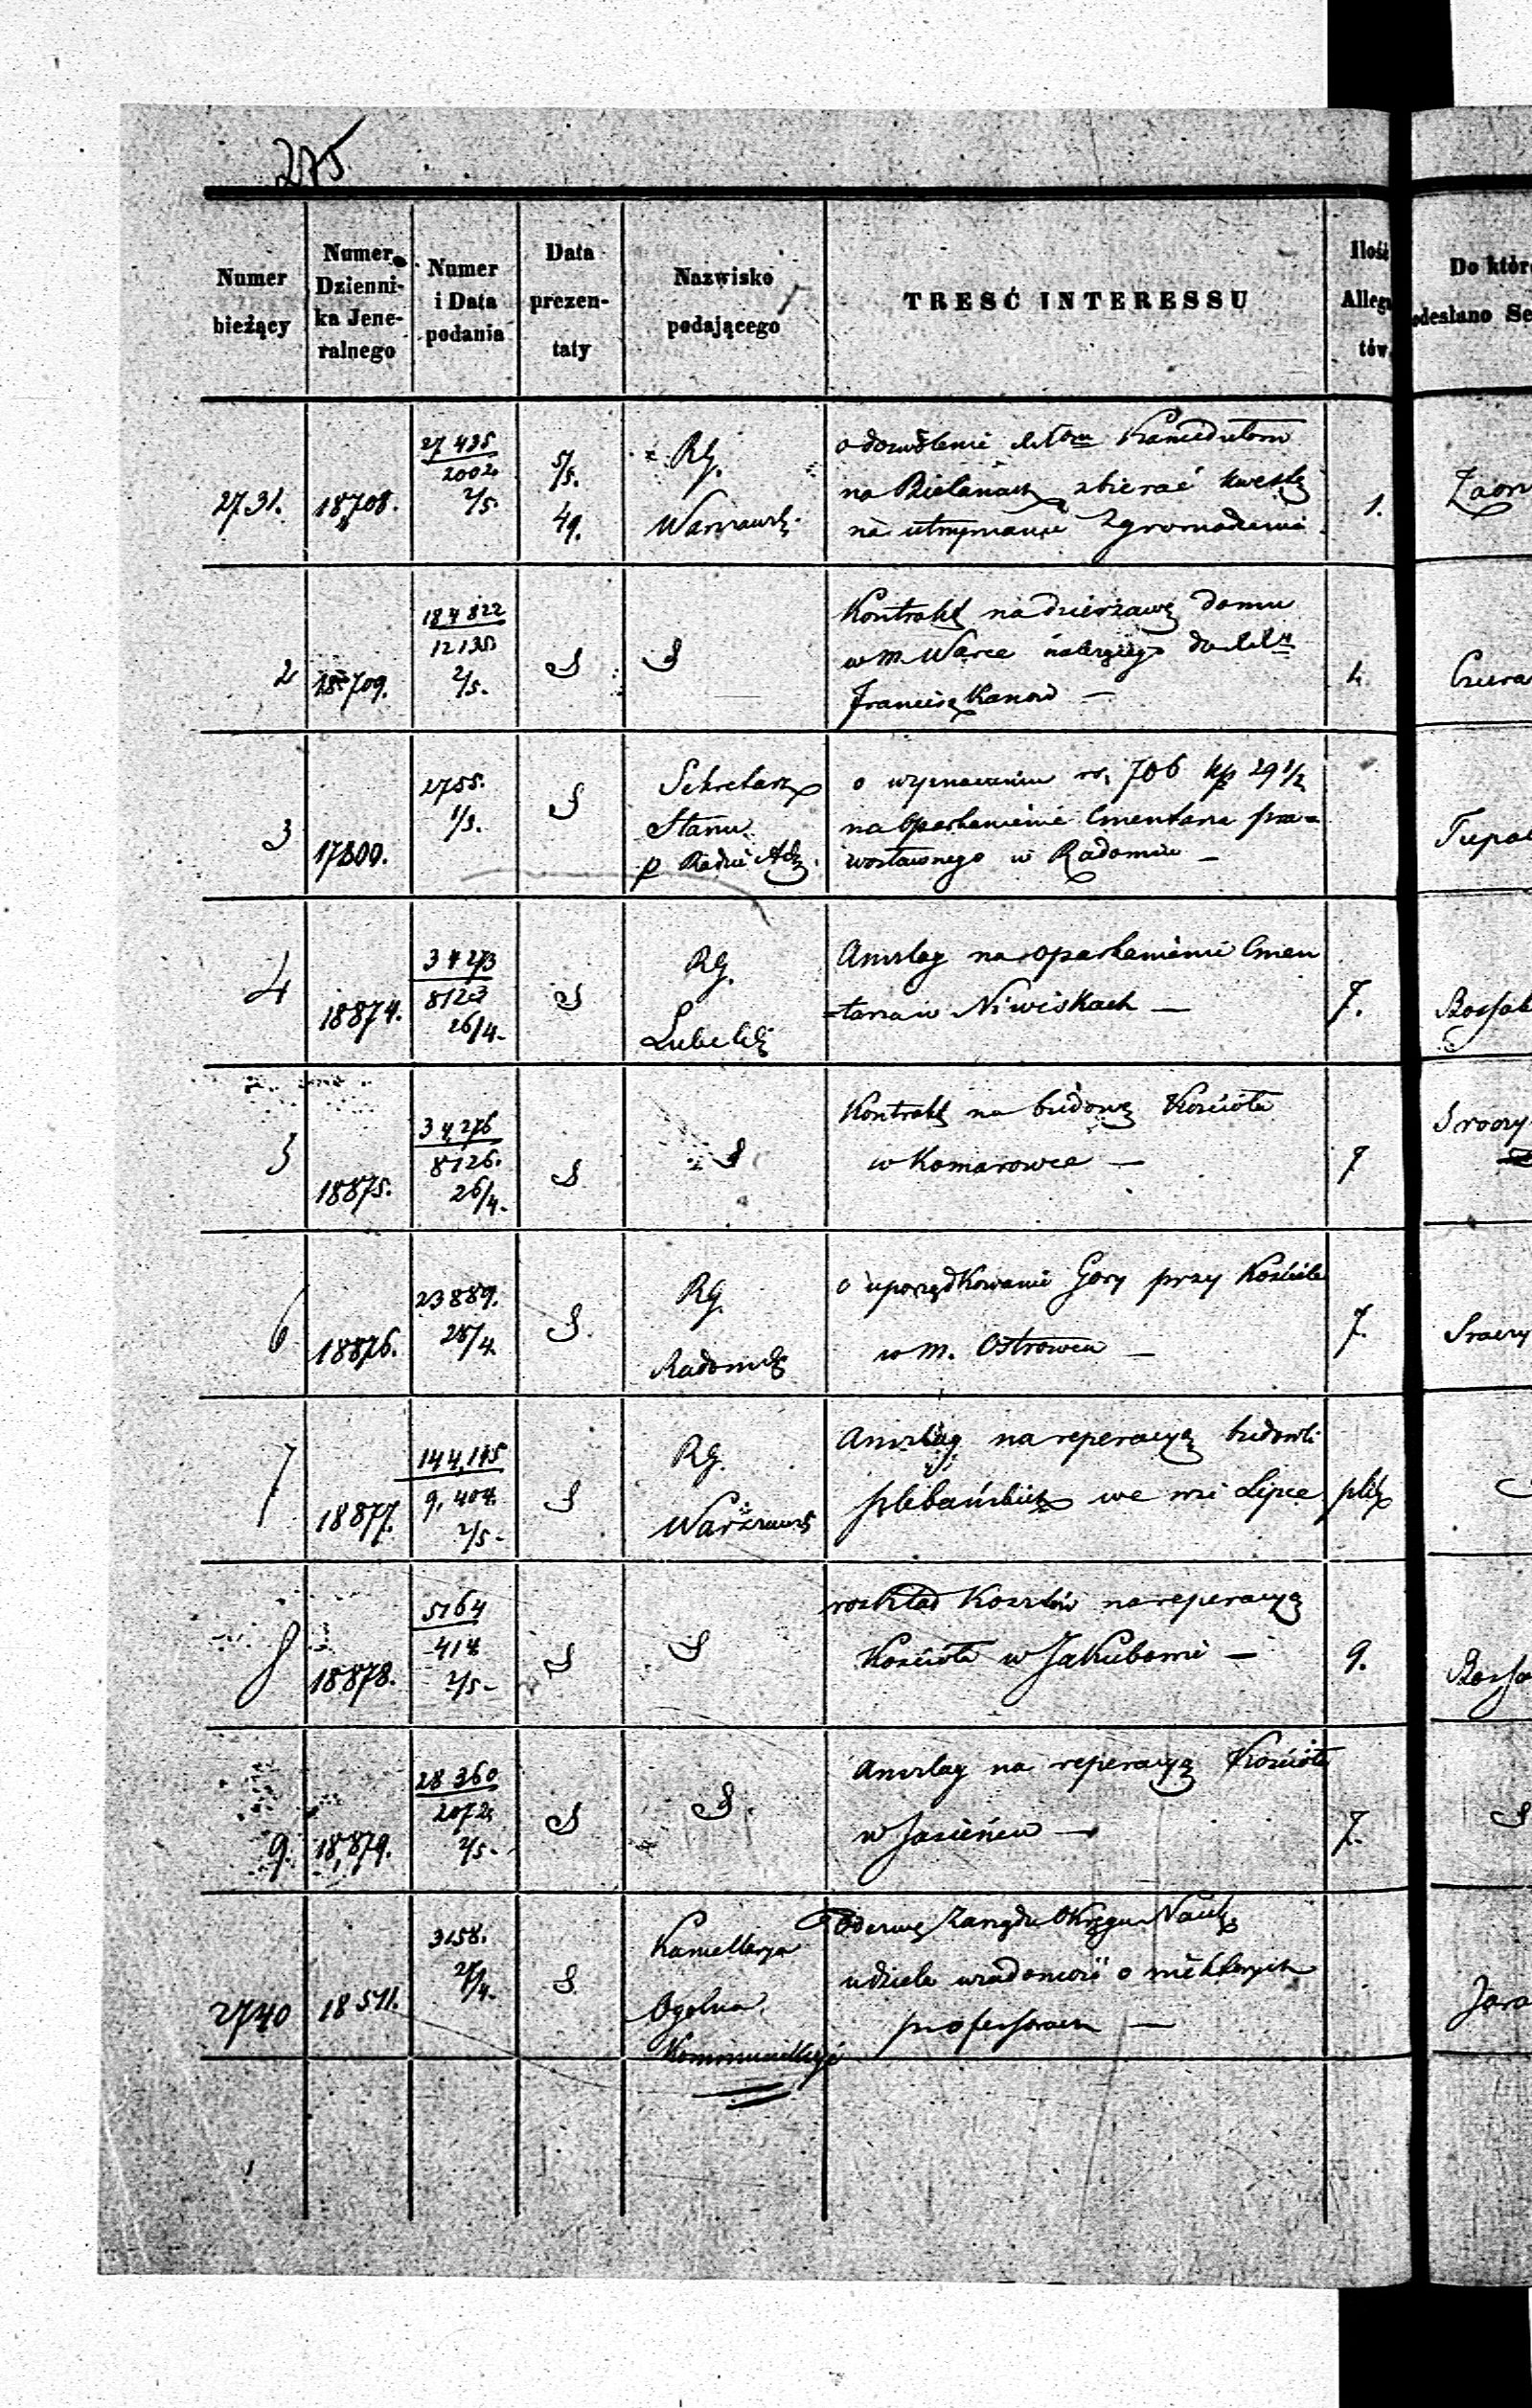 275
Numer bieżący | Numer Dzienni-ka Jene-ralnego | Numer i Data podania | Data prezen-taty | Nazwisko podającego | TREŚĆ INTERESSU | Ilość Allega tów
Do któr
odesłano Se
2731. | 18708. | 27 435 / 2002 2/5. | 5/5. 49. | RG. Warszawsk. | o dozwolenie Kamedułom
na Bielanach zbierać kwestę
na utrzymanie Zgromadzenia | 1.
2 | 18709. | 184 822 / 12135 2/5. | S | S | Kontrakt na dzierżawę domu
w m. Warce należącego do
Franciszkanów — | 4
3 | 17800. | 2755. 1/3. | S | Sekretarz Stanu p Radzie Adz. | o wyznaczeniu rs. 706 kp 29 1/2
na oparkanienie Cmentarza pra=
wosławnego w Radomiu —
4 | 18874. | 34 273 / 8123 26/4. | S | RG. Lubelsk | Anszlag na oparkanienie Cmen
=tarza w Niwiskach — | 7.
5 | 18875. | 34,276 / 8126. 26/4. | S | S | Kontrakt na budowę Kościoła
w Komarowce — | 7
6 | 18876. | 23889. 28/4 | S. | RG. Radomsk | o uporządkowanie Góry przy Kościele
w m. Ostrowcu — | 7.
7 | 18877. | 144,145 / 9,404. 2/5- | S | RG. Warszaws | Anszlag na reperacyą budowli
plebańskich we wsi Lipce | plik
8 | 18878. | 5164 / 414 2/5- | S | S | rozkład Kosztów na reperacyą
Kościoła w Jakubowie — | 9.
9. | 18,879. | 28 360 / 2072 2/5- | S | S. | Anszlag na reperacyą Kościoła
w Jasieńcu — | 7.
2740 | 18511. | 3158. 27/4. | S. | Kancellarya Ogólna | Zarządu Okręgu Nauk
udziela wiadomość o niektórych
professorach —